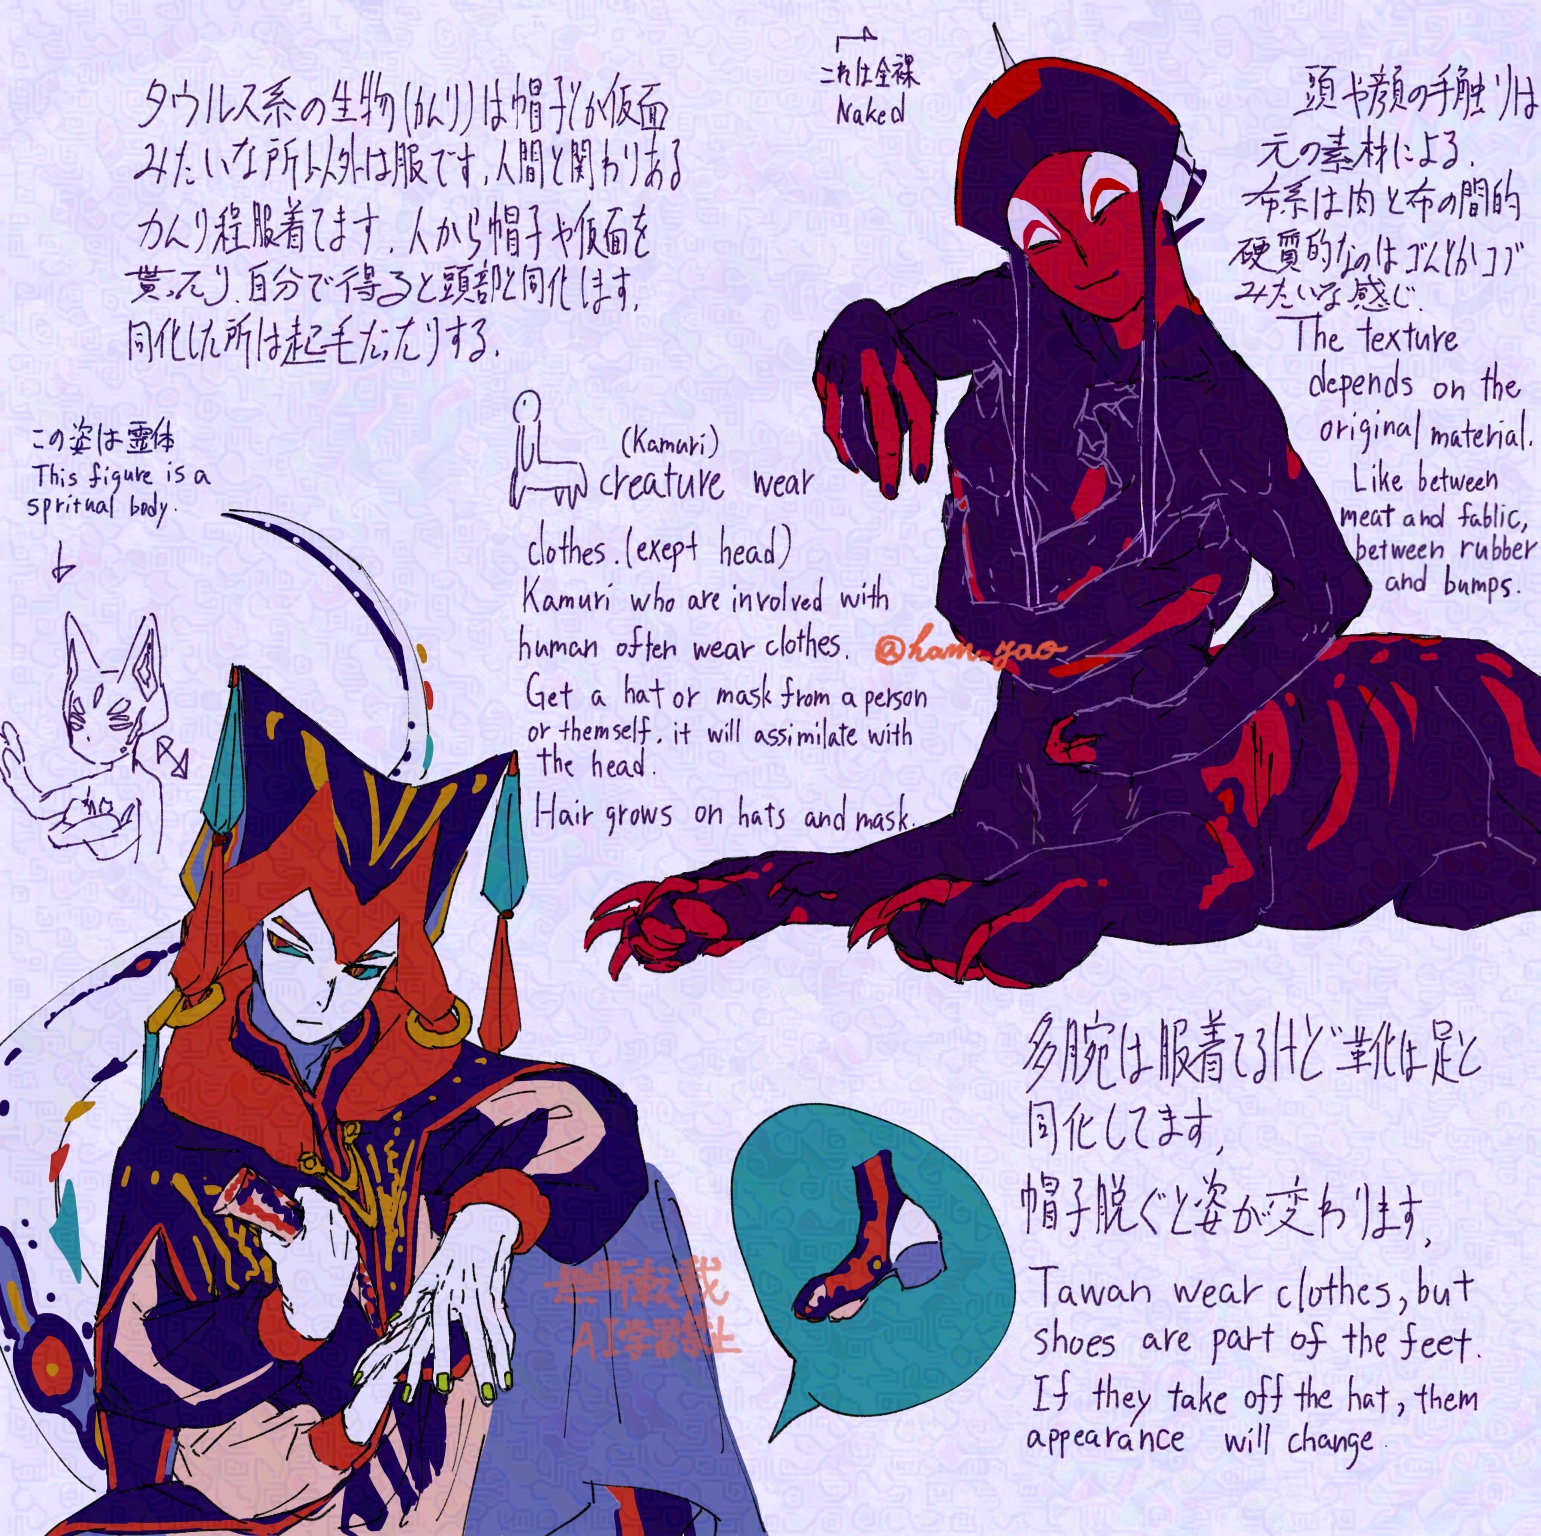 タウルス系の生物(かんり)は帽子とか仮面
みたいな所以外は服です、人間と関わりある
かんり程服着てます。人から帽子や仮面を
貰ったり、自分で得ると頭部と同化します。
同化した所は起毛だったりする。
これは全裸
Naked
頭や顔の手触りは
元の素材による。
布系は肉と布の間的
硬質的なのはゴムとかコブ
みたいな感じ。
The texture
depends on the
original material.
Like between
meat and fablic,
between rubber
and bumps.
この姿は霊体
This figure is a
spritual body.
(Kamuri)
creature wear
clothes.(exept head)
Kamuri who are involved with
human often wear clothes.
Get a hat or mask from a person
or themself. it will assimilate with
the head.
Hair grows on hats and mask.
@ham_yao
多腕は服着てるけど靴は足と
同化してます。
帽子脱ぐと姿が変わります。
Tawan wear clothes, but
shoes are part of the feet.
If they take off the hat, them
appearance will change.
無断転載
AI学習禁止